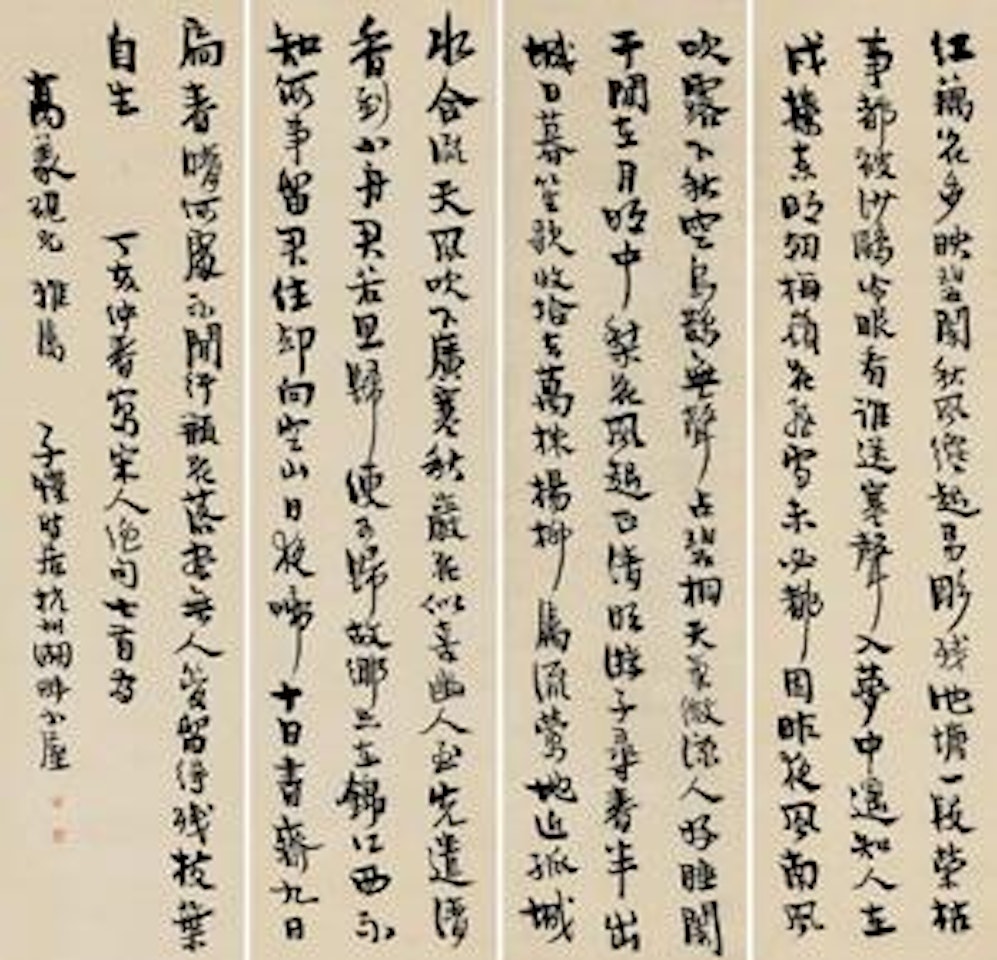 红藕花多映碧闌秋風纔起易彫残池塘一段荣枯
事都被沙鷗冷眼看誰送寒聲入夢中遥知人在
戍樓东明朝梅嶺花飛雪未必都因昨夜風南風
吹露下秋空烏鵲無聲占碧桐天氣微涼人好睡闌
干閒在月明中梨花風起正清明游子尋春半出
城日暮笙歌收拾去萬株楊柳屬流鶯地近孤城
水合流天風吹下廣寒秋巖花似喜幽人至先遣清
香到小舟君若思歸便可歸故鄉只在錦江西不
知何事留君住却向空山日夜啼十日書齋九日
扃春晴何處不閒行瓶花落盡無人管留得残枝葉
自生 丁亥仲春寫宋人绝句七首為
萬硯兄雅屬 子愷時居杭州湖畔小屋